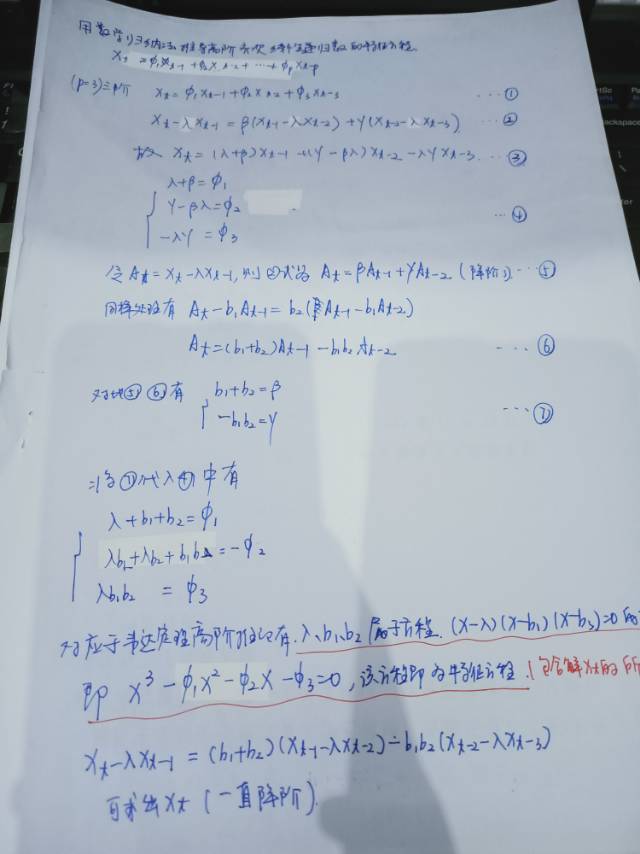 用数学归纳法推导高阶齐次线性递归数的特征方程.
X_t = φ₁X_{t-1} + φ₂X_{t-2} + ⋯ + φ_pX_{t-p}
(p=3)三阶 X_t = φ₁X_{t-1} + φ₂X_{t-2} + φ₃X_{t-3} ⋯ ①
X_t - λX_{t-1} = β(X_{t-1} - λX_{t-2}) + γ(X_{t-2} - λX_{t-3}) ⋯ ②
故 X_t = (λ+β)X_{t-1} + (γ - βλ)X_{t-2} - λγX_{t-3} ⋯ ③
λ+β = φ₁
γ - βλ = φ₂ ⋯ ④
-λγ = φ₃
令 A_t = X_t - λX_{t-1}, 则②式为 A_t = βA_{t-1} + γA_{t-2} (降阶) ⋯ ⑤
同样处理有 A_t - b₁A_{t-1} = b₂(A_{t-1} - b₁A_{t-2})
A_t = (b₁+b₂)A_{t-1} - b₁b₂A_{t-2} ⋯ ⑥
对比⑤⑥有 b₁+b₂ = β
-b₁b₂ = γ ⋯ ⑦
将⑦代入④中有
λ + b₁ + b₂ = φ₁
λb₁ + λb₂ + b₁b₂ = -φ₂
λb₁b₂ = φ₃
对应于韦达定理高阶推论有. λ、b₁、b₂ 属于方程. (X-λ)(X-b₁)(X-b₃)=0 的
即 X³ - φ₁X² - φ₂X - φ₃ = 0, 该方程即为特征方程. (包含解X_t的所
X_t - λX_{t-1} = (b₁+b₂)(X_{t-1} - λX_{t-2}) - b₁b₂(X_{t-2} - λX_{t-3})
可求出X_t (一直降阶).